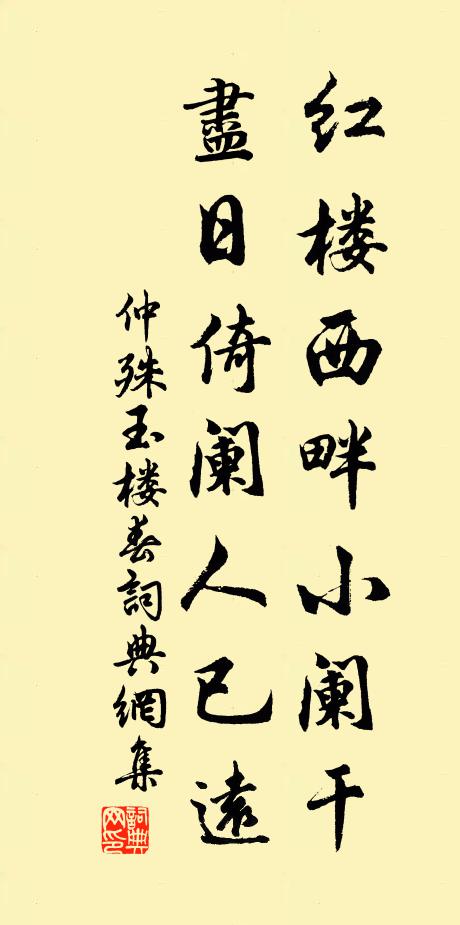 红楼西畔小阑干
盡日倚阑人已遠
仲殊玉楼春詞典網集
詞典网印